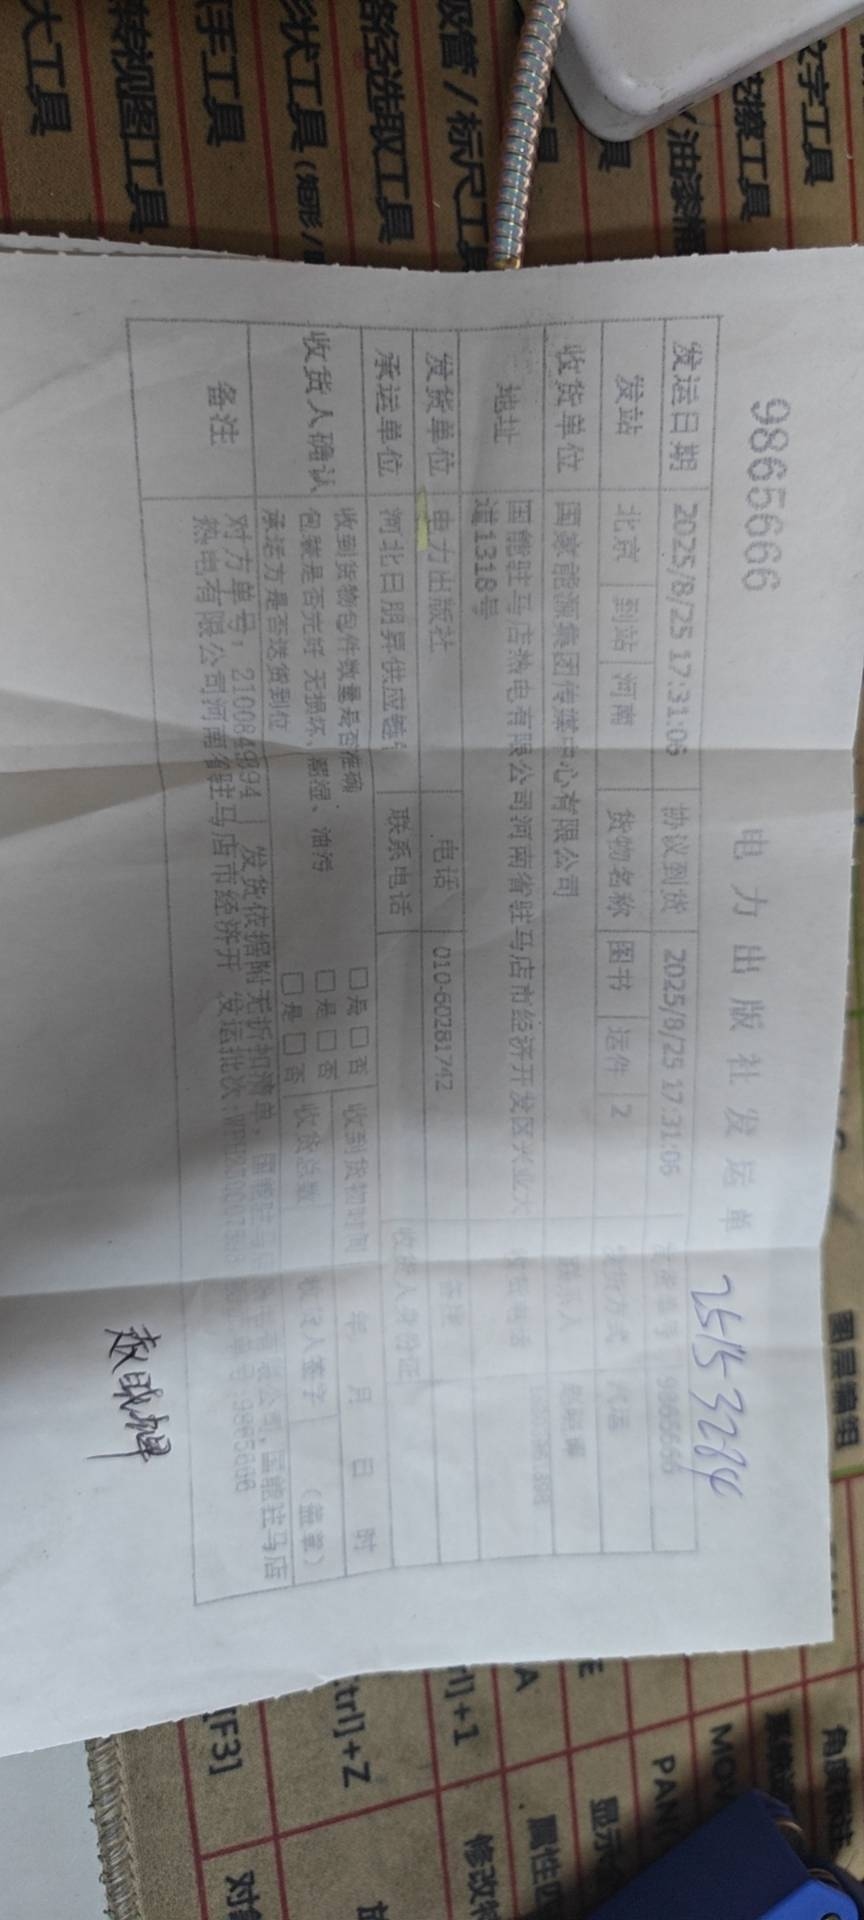 9865666
电力出版社发运单
2515-3284
发运日期 2025/8/25 17:31:06 协议到货 2025/8/25 17:31:06 9865666
发站 北京 到站 河南 货物名称 图书 运件 2 发货方式 汽运
收货单位 国家能源集团传媒中心有限公司 联系人
地址 国能驻马店热电有限公司河南省驻马店市经济开发区兴业大 收货电话
道1318号
发货单位 电力出版社 电话 010-60281742
承运单位 河北日朋昇供应链 联系电话 收货人身份证
收货人确认 收到货物包件数量是否准确 □是 □否 收到货物时间 年 月 日 时
包装是否完好 无损坏、潮湿、油污 □是 □否 收货总数 收货人签字 (盖章)
承运方是否送货到位 □是 □否
备注 对方单号:2100849894 发货依据附无折扣清单,国能驻马店热电有限公司,国能驻马店
热电有限公司河南省驻马店市经济开 发运批次: :9865666
大工具
转视图工具
手工具
形状工具(矩形/
路径选取工具
吸管/标尺工具
/油漆桶
文字工具
图层编组
[F3]
Ctrl]+Z
rl]+1
A
E
MOV
PAN
角度标注
显示
属性匹
修改特
对象